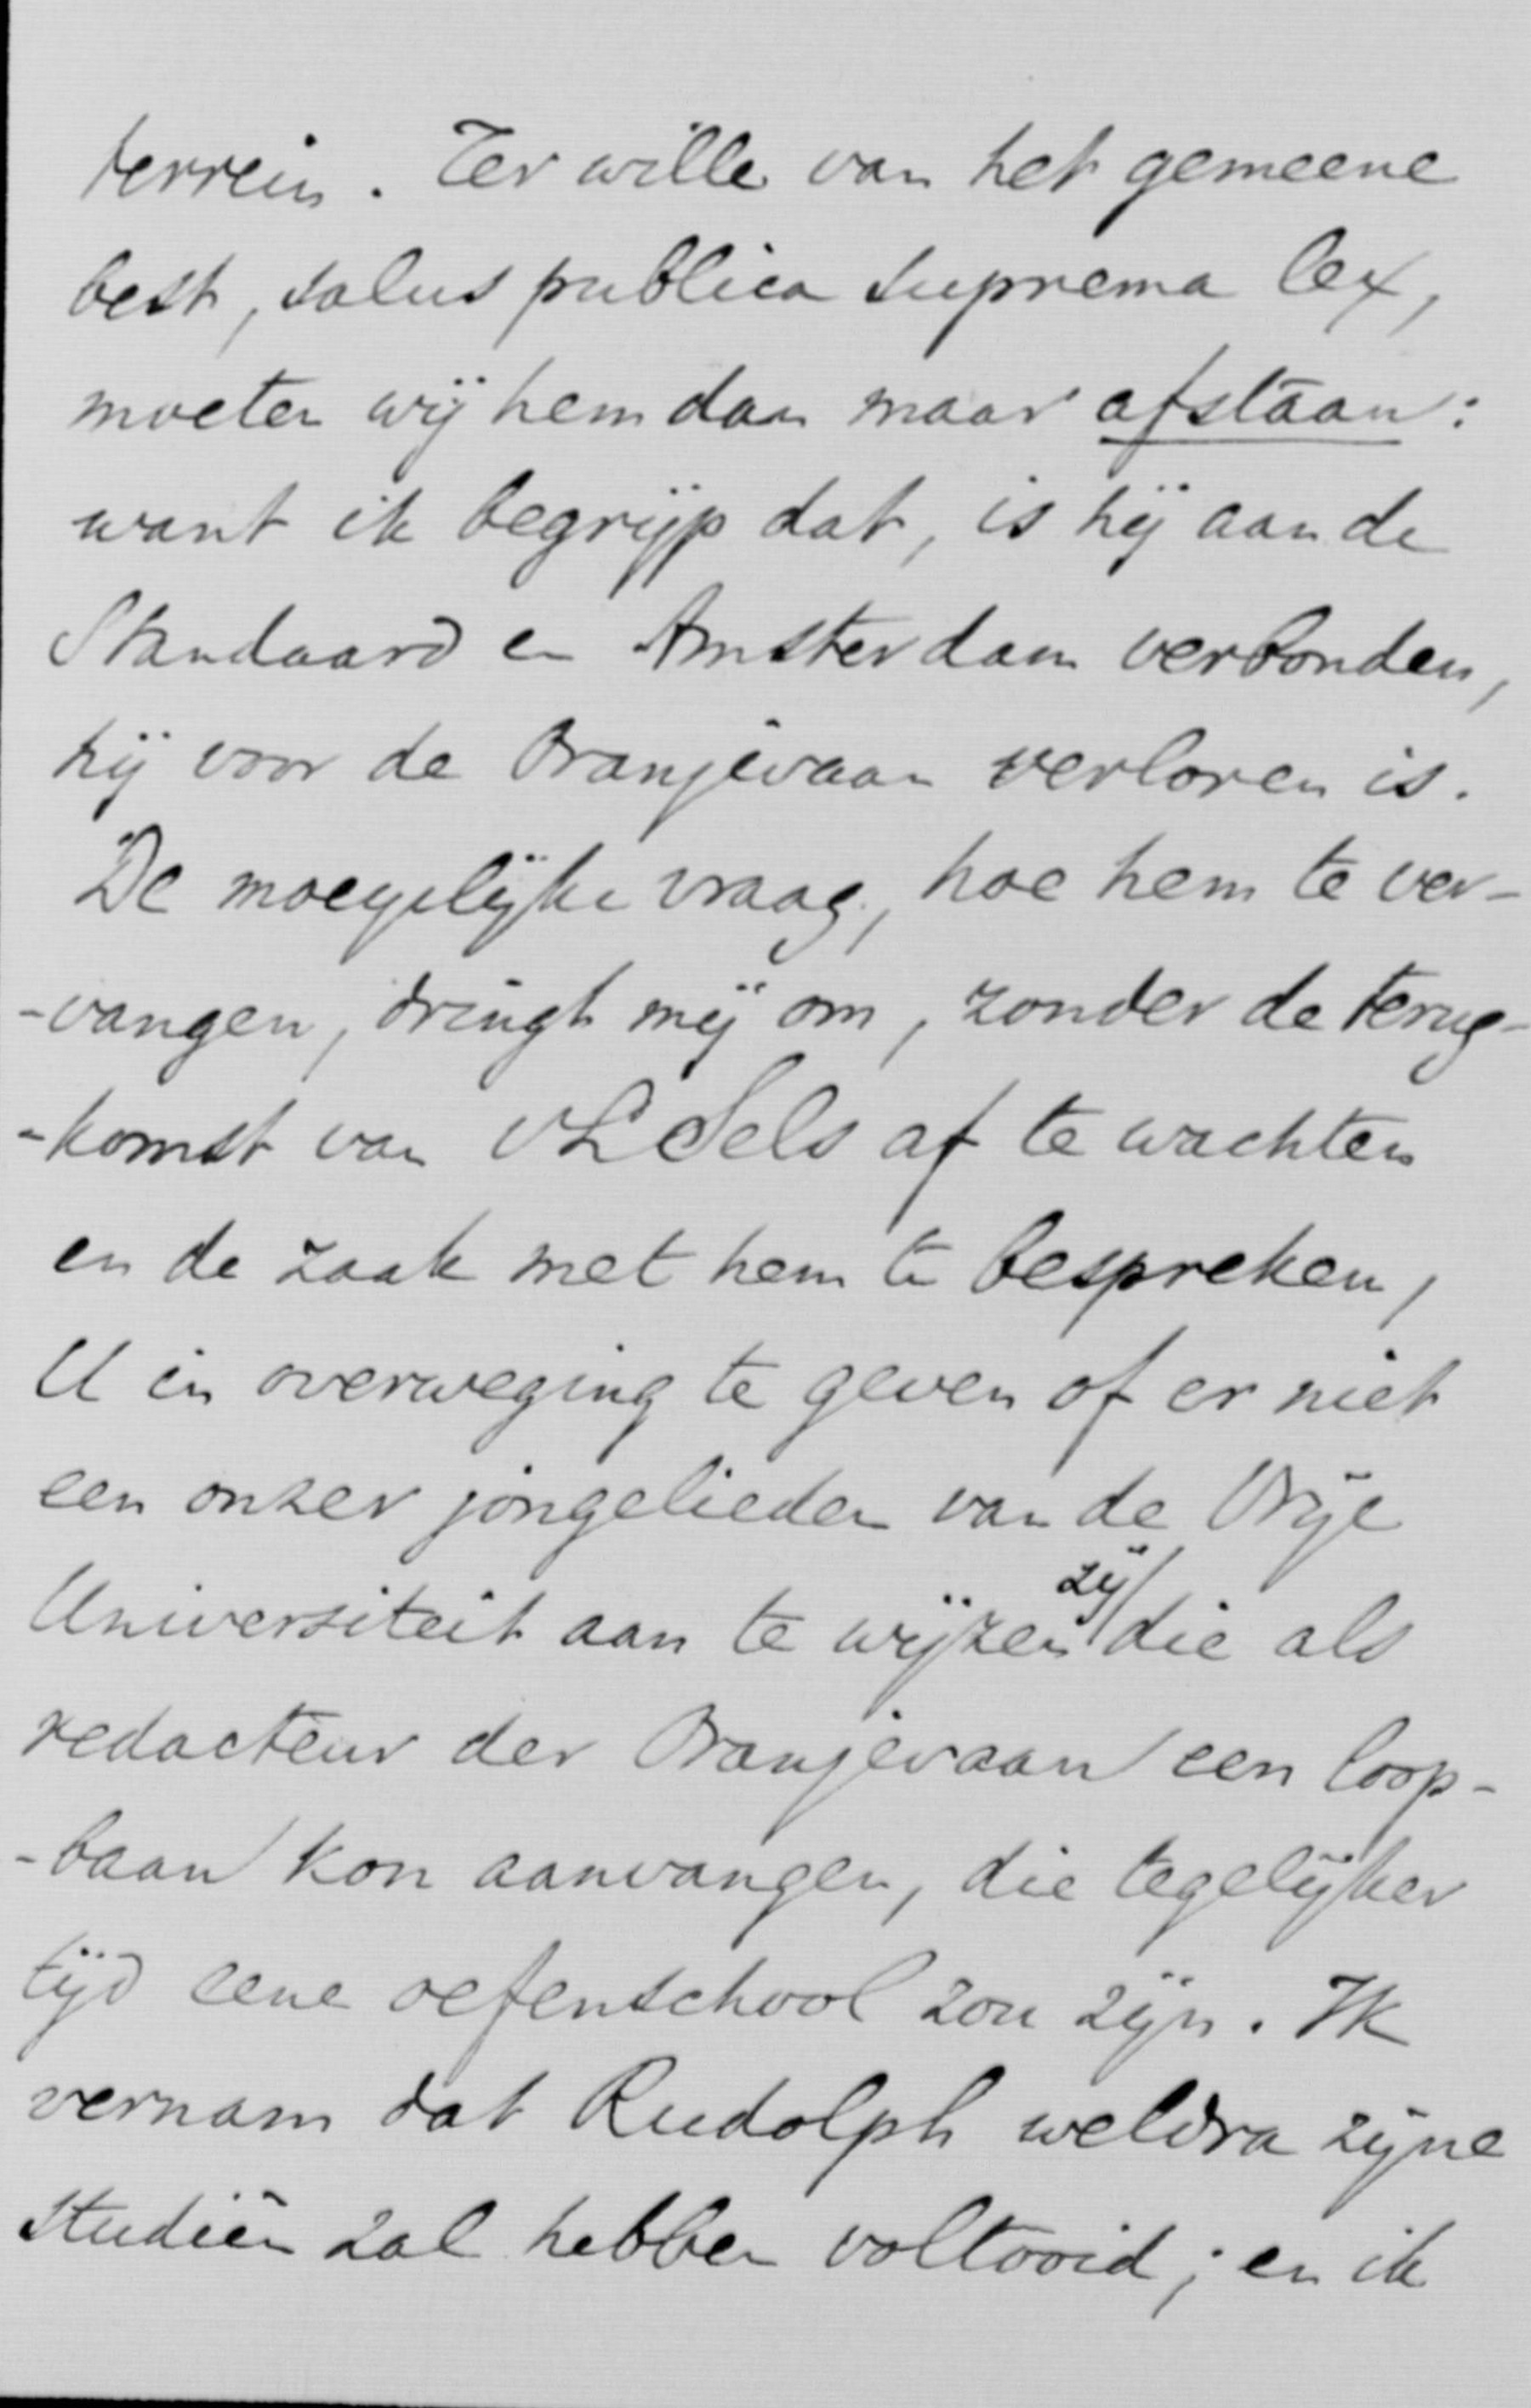 terrein. Ter wille van het gemeene
best, salus publica suprema lex,
moeten wij hem dan maar afstaan:
want ik begrijp dat, is hij aan de
Standaard en Amsterdam verbonden,
hij voor de Oranjevaan verloren is.
De moeyelijke vraag, hoe hem te ver-
-vangen, dringt mij om, zonder de terug-
-komst van VL Sels af te wachten
en de zaak met hem te bespreken,
U in overweging te geven of er niet
een onzer jongelieden van de Vrije
zij
Universiteit aan te wijzen die als
redacteur der Oranjevaan een loop-
-baan kon aanvangen, die tegelijker
tijd eene oefenschool zou zijn. Ik
vernam dat Rudolph weldra zijne
studiën zal hebben voltooid; en ik